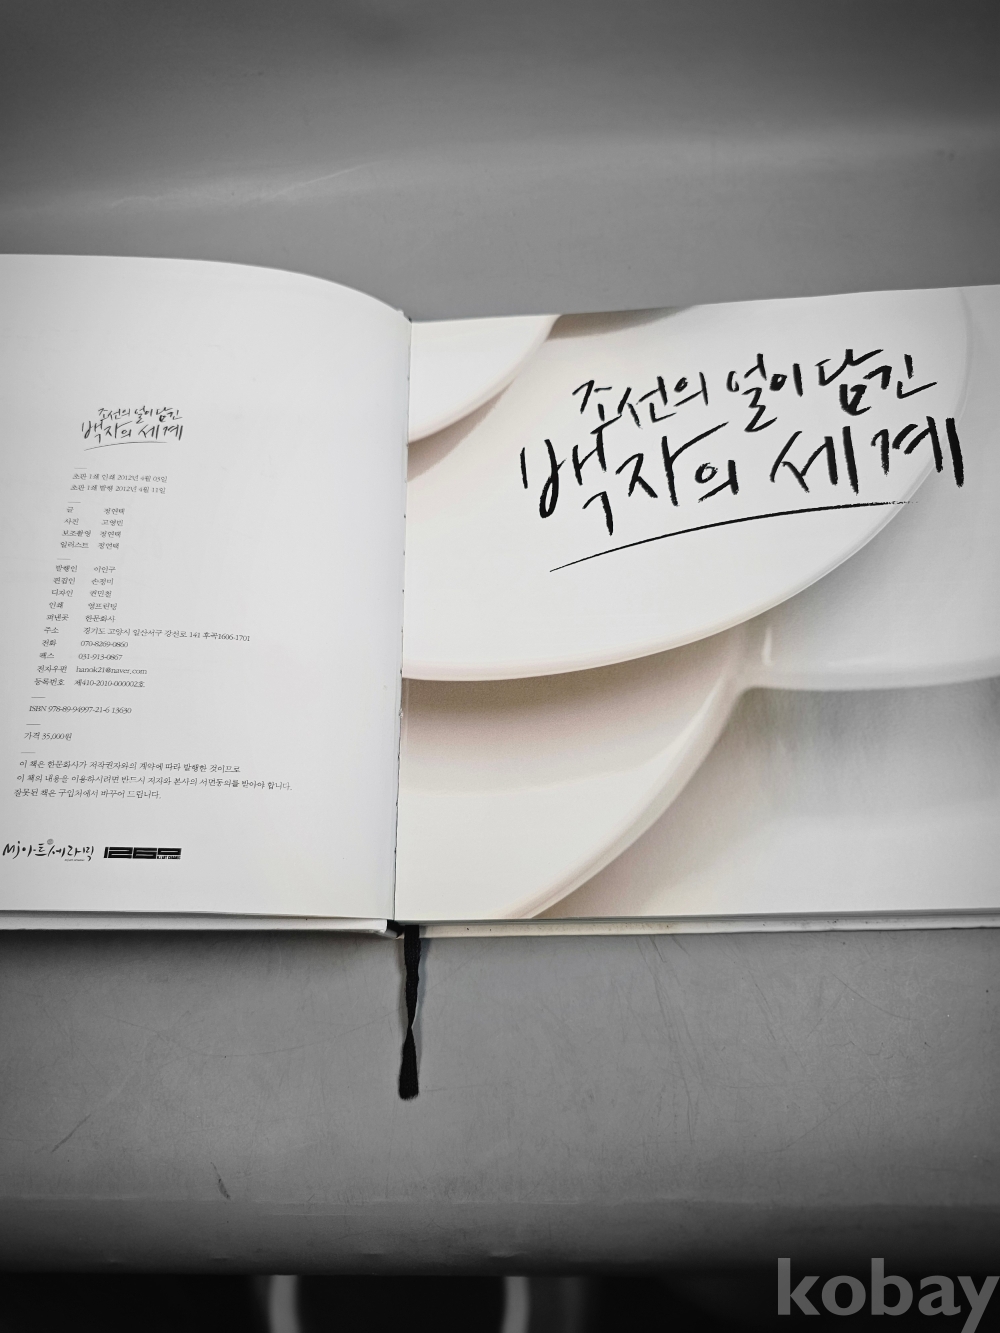 조선의 얼이 담긴
백자의 세계
초판 1쇄 인쇄 2012년 4월 03일
초판 1쇄 발행 2012년 4월 11일
글 정연택
사진 고영빈
보조촬영 정연택
일러스트 정연택
발행인 이인구
편집인 손정미
디자인 권민철
인쇄 영프린팅
펴낸곳 한문화사
주소 경기도 고양시 일산서구 강선로 141 후곡1606-1701
전화 070-8269-0860
팩스 031-913-0867
전자우편 hanok21@naver.com
등록번호 제410-2010-000002호
ISBN 978-89-94997-21-6 13630
가격 35,000원
이 책은 한문화사가 저작권자와의 계약에 따라 발행한 것이므로
이 책의 내용을 이용하시려면 반드시 저자와 본사의 서면동의를 받아야 합니다.
잘못된 책은 구입처에서 바꾸어 드립니다.
Mj아트세라믹 1260
조선의 얼이 담긴
백자의 세계
kobay